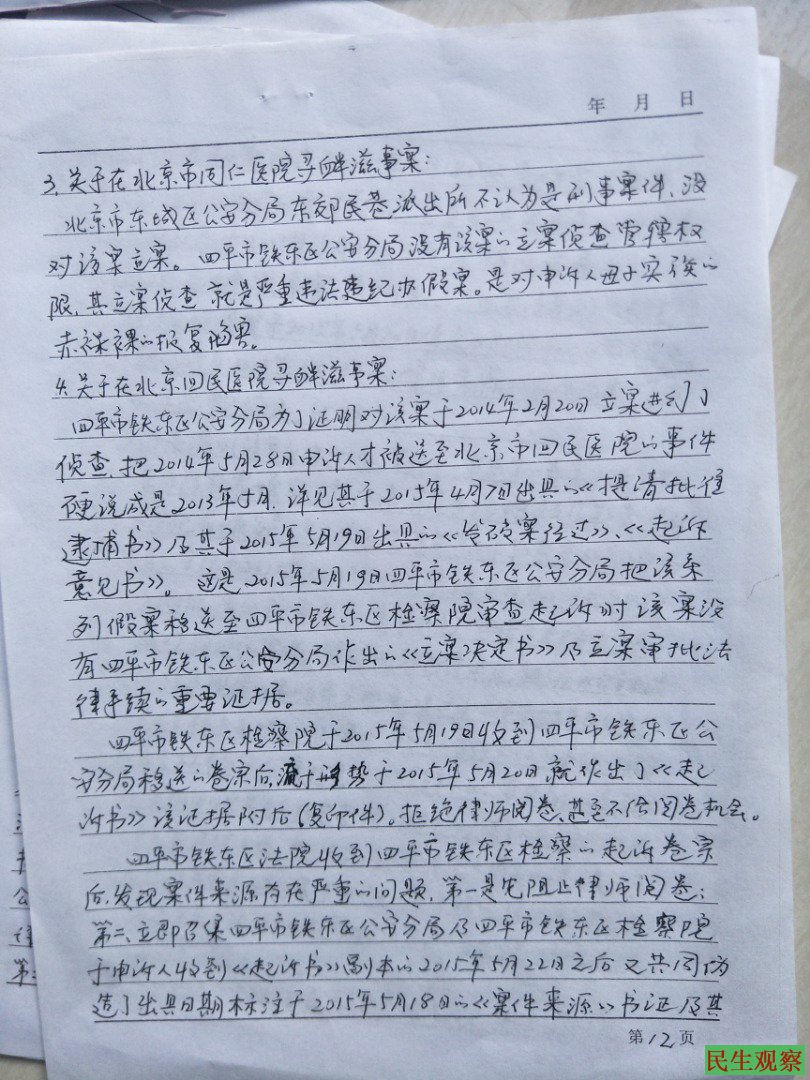 年 月 日
3. 关于在北京市同仁医院寻衅滋事案:
北京市东城区公安分局东郊民巷派出所不认为是刑事案件、没
对该案立案。四平市铁东区公安分局没有该案的立案侦查管辖权
限,其立案侦查就是严重违法违纪办假案。是对申诉人母子实施的
赤裸裸的报复陷害。
4.关于在北京回民医院寻衅滋事案:
四平市铁东区公安分局为了证明对该案于2014年2月20日立案进行了
侦查,把2014年5月28日申诉人才被送至北京市回民医院的事件
硬说成是2013年5月.详见其于2015年4月7日出具的《提请批准
逮捕书》及其于2015年5月19日出具的《发破案经过》、《起诉
意见书》。这是2015年5月19日四平市铁东区公安分局把该系
列假案移送至四平市铁东区检察院审查起诉时该案没
有四平市铁东区公安分局作出的《立案决定书》及立案审批法
律手续的重要证据。
四平市铁东区检察院于2015年5月19日收到四平市铁东区公
安分局移送的卷宗后,流于形势于2015年5月20日就作出了《起
诉书》该证据附后(复印件)。拒绝律师阅卷、甚至不给阅卷机会。
四平市铁东区法院收到四平市铁东区检察的起诉卷宗
后,发现案件来源存在严重的问题,第一是先阻止律师阅卷;
第二、立即召集四平市铁东区公安分局及四平市铁东区检察院
于申诉人收到《起诉书》副本的2015年5月22日之后又共同伪
造了出具日期标注于2015年5月18日的《案件来源》书证及其
第12页
民生观察